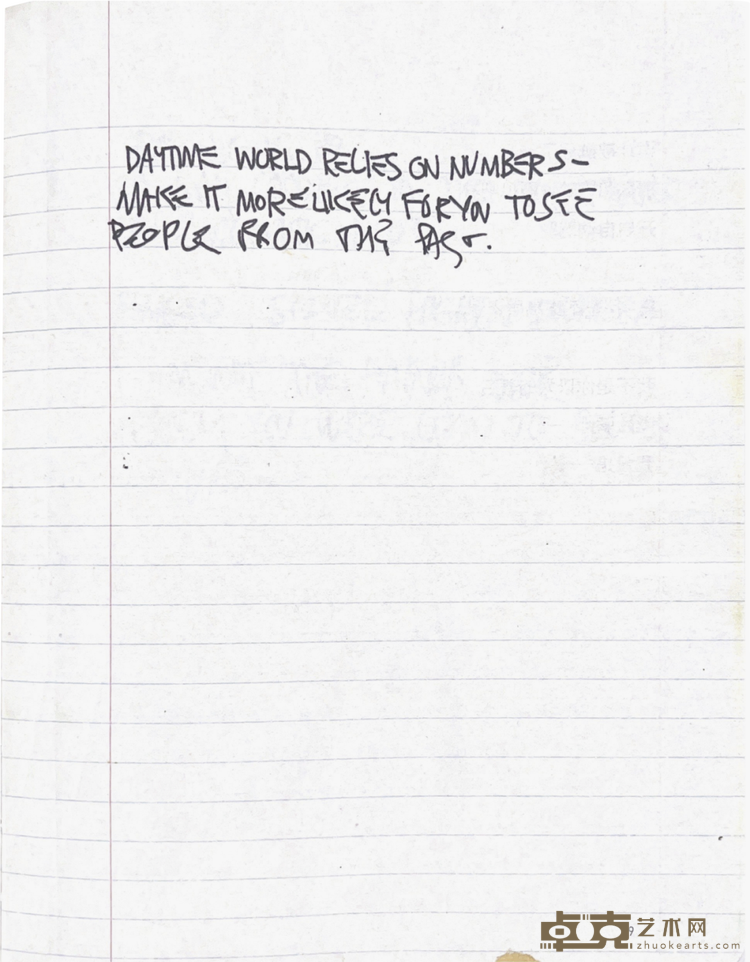 DAYTIME WORLD RELIES ON NUMBERS-
MAKE IT MORE LIKELY FOR YOU TO SEE
PEOPLE FROM THE PAST.
卓克艺术网
zhuokearts.com